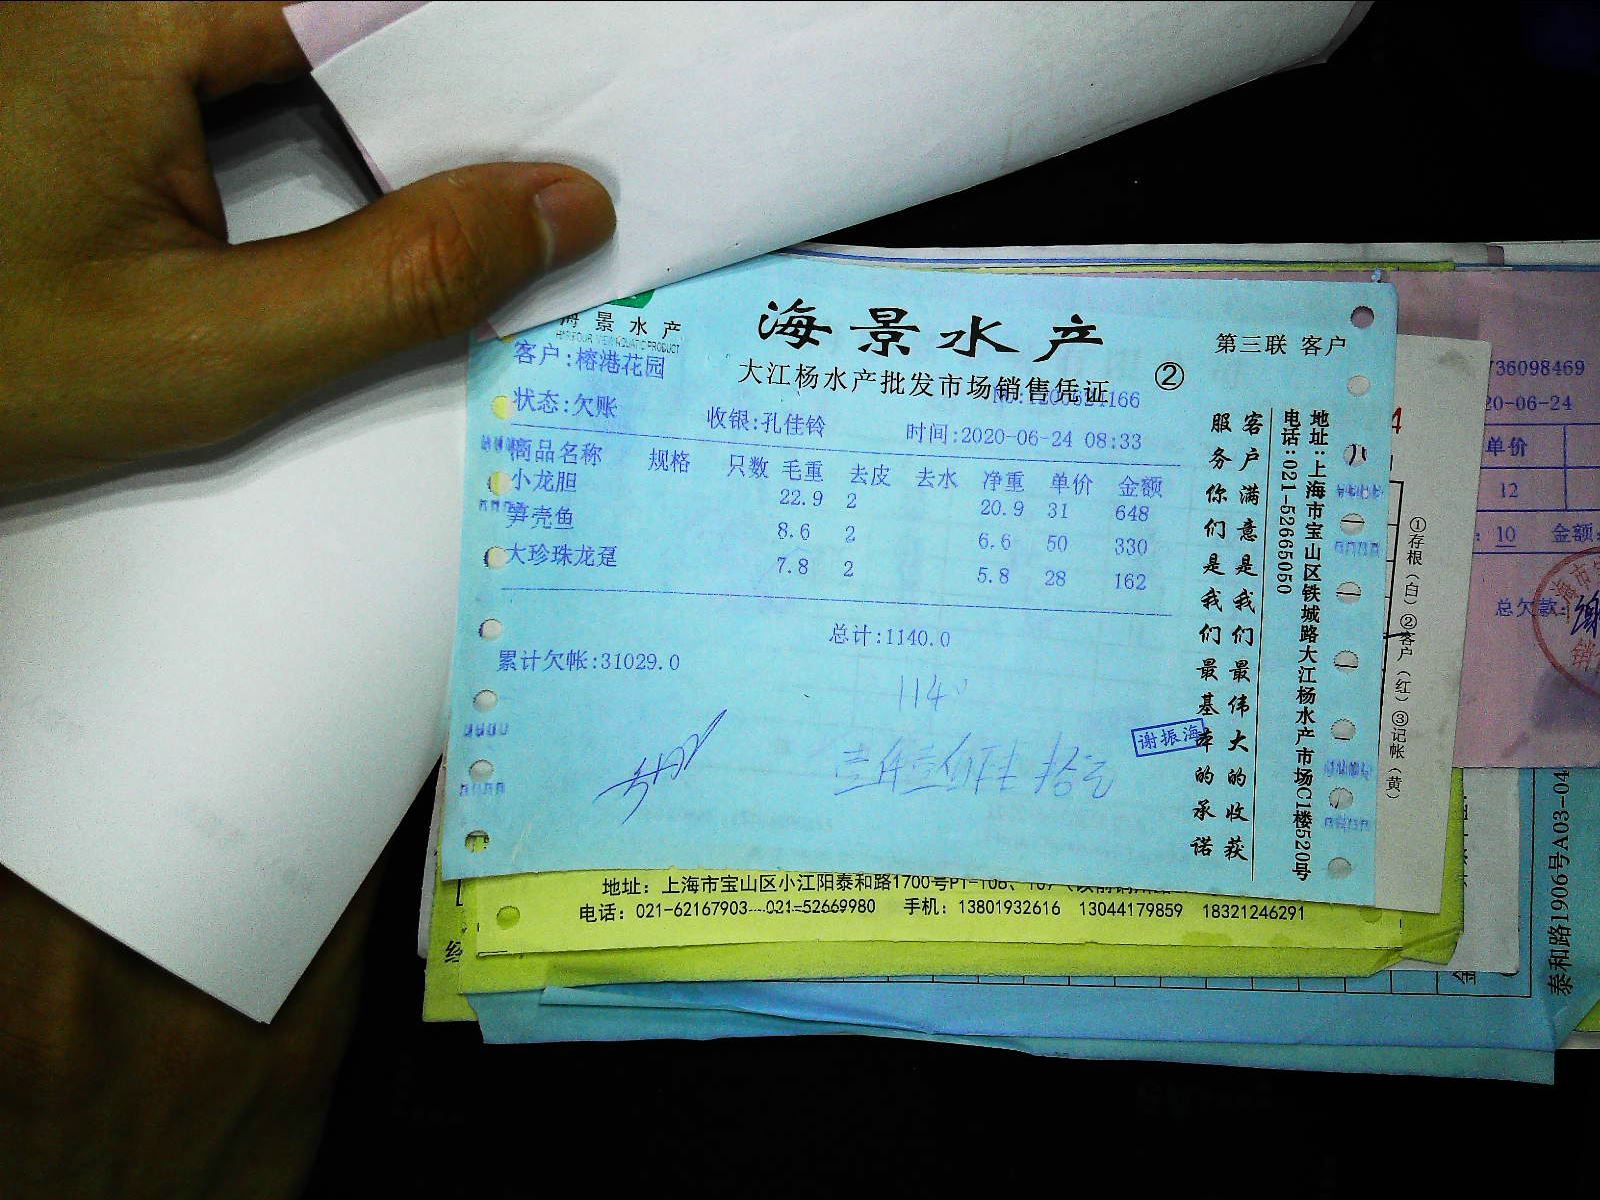 海景水产
海景水产
第三联 客户
大江杨水产批发市场销售凭证
②
客户:榕港花园
状态:欠账
收银:孔佳铃
时间:2020-06-24 08:33
商品名称 规格 只数 毛重 去皮 去水 净重 单价 金额
小龙胆 22.9 2 20.9 31 648
笋壳鱼 8.6 2 6.6 50 330
大珍珠龙趸 7.8 2 5.8 28 162
总计:1140.0
累计欠帐:31029.0
1140
谢振海
客户满意是我们最伟大的收获
服务你们是我们最基本的承诺
地址:上海市宝山区铁城路大江杨水产市场C1楼520号
电话:021-52665050
①存根(白)②客户(红)③记帐(黄)
736098469
20-06-24
单价
12
10 金额:
总欠款:
地址：上海市宝山区小江阳泰和路1700号
电话：021-62167903 021-52669980 手机：13801932616 13044179859 18321246291
泰和路1906号A03-04